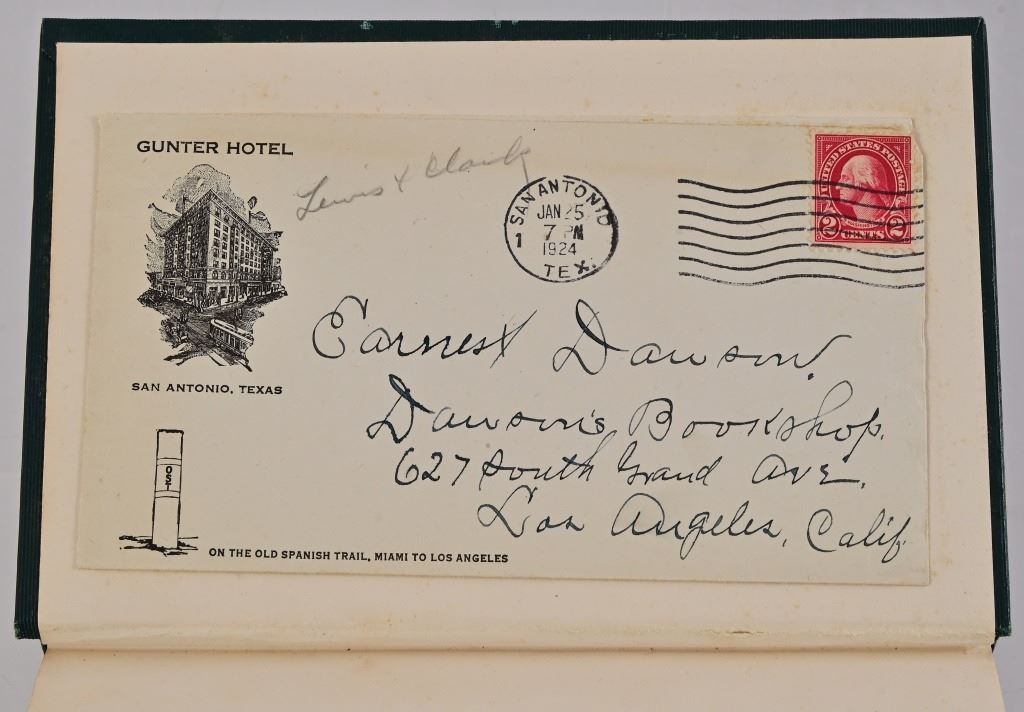 GUNTER HOTEL
Lewis & Clark
SAN ANTONIO
JAN 25
7 PM
1
1924
TEX.
UNITED STATES POSTAGE
WASHINGTON
2 2
Earnest Dawson.
SAN ANTONIO, TEXAS
Dawson's Bookshop.
627 South Grand Ave.
Los Angeles, Calif.
OST
ON THE OLD SPANISH TRAIL, MIAMI TO LOS ANGELES